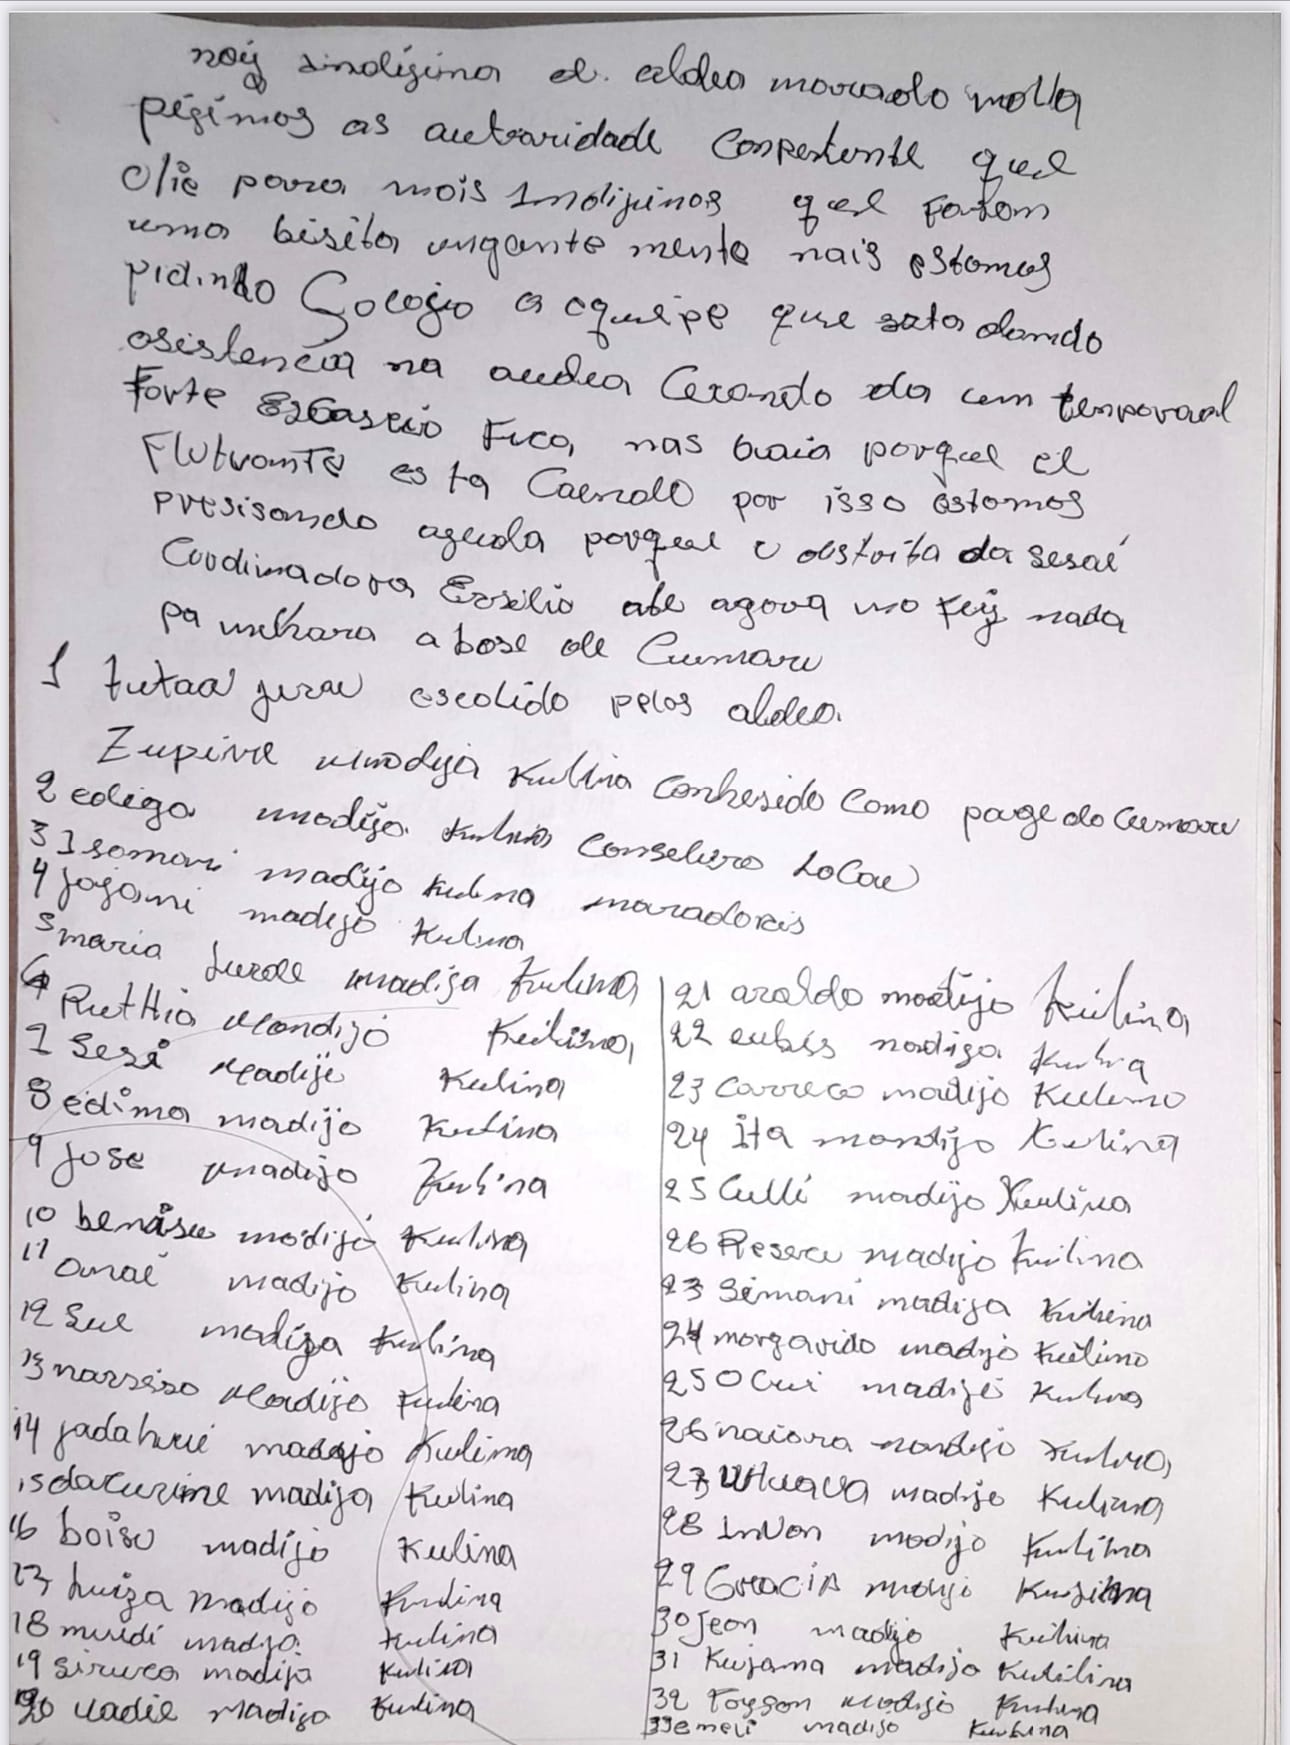 noiz indigina d. aldea morado molla
pisimos as autoridade conpertente quel
olie para nois indijinos quel fasam
uma bisita urgante mente nois estamos
pidindo Socogio a equipe que esta dando
asistencia na audea Cerando da um temporaal
Forte Escascio Fuco, nas baia porque el
Flutuante esta Caendo por isso estomos
presisando aguda porque o distrito da Sesai
Cordinadora Ersilio ate agora no feiz nada
pa melhara a base de Cumaru
1 tutaa jerau escolido pelos aldea.
Zupive madija Kulina conhesido como page do Cumaru
2 ediga madija Kulina conselero Local
3 Isomari madijo Kulina maradoreis
4 jojomi madijo Kulina
5 maria madija Kulina
6 Ruttia Mandijo Kulina
7 Sesi Madije Kulina
8 edima madijo Kulina
9 jose madijo Kulina
10 benisu modijo Kulina
11 Onai madijo Kulina
12 Sul madija Kulina
13 narsiso Madijo Kulina
14 jadahui madijo Kulina
15 dacurime madija Kulina
16 boisu madijo Kulina
17 huiza Madijo Kulina
18 muidi madija Kulina
19 siruca madija Kulina
20 Uadil Madija Kulina
21 araldo madijo Kulina
22 madiga Kulina
23 Correco madijo Kulino
24 Ita mondijo Kulina
25 Culli madijo Kulina
26 Reseru madijo Kulina
23 Simani madija Kulina
24 morgarido madijo Kulino
25 Ocui madije Kulina
26 naiora mandijo Kulina
27 madije Kulina
28 InVon modijo Kulina
29 GraCiA madiji Kulina
30 Jeon madijo Kulina
31 Kujama madijo Kulilina
32 Foyson Madijo Kulina
33 emeli madijo Kulina